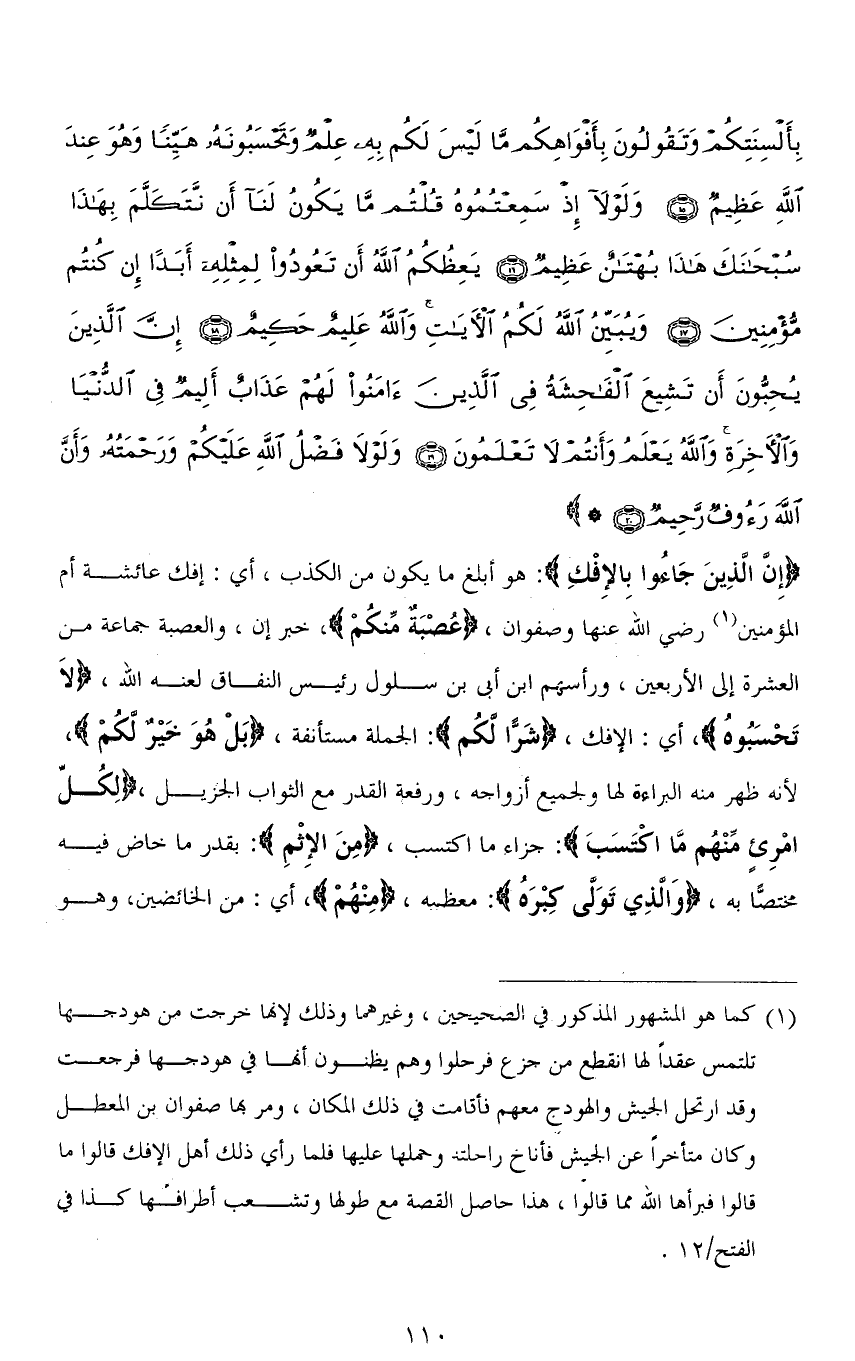 بِأَلْسِنَتِكُمْ وَتَقُولُونَ بِأَفْوَاهِكُم مَّا لَيْسَ لَكُم بِهِۦ عِلْمٌ وَتَحْسَبُونَهُۥ هَيِّنًا وَهُوَ عِندَ
ٱللَّهِ عَظِيمٌ ١٥ وَلَوْلَآ إِذْ سَمِعْتُمُوهُ قُلْتُم مَّا يَكُونُ لَنَآ أَن نَّتَكَلَّمَ بِهَٰذَا
سُبْحَٰنَكَ هَٰذَا بُهْتَٰنٌ عَظِيمٌ ١٦ يَعِظُكُمُ ٱللَّهُ أَن تَعُودُوا۟ لِمِثْلِهِۦٓ أَبَدًا إِن كُنتُم
مُّؤْمِنِينَ ١٧ وَيُبَيِّنُ ٱللَّهُ لَكُمُ ٱلْءَايَٰتِ ۚ وَٱللَّهُ عَلِيمٌ حَكِيمٌ ١٨ إِنَّ ٱلَّذِينَ
يُحِبُّونَ أَن تَشِيعَ ٱلْفَٰحِشَةُ فِى ٱلَّذِينَ ءَامَنُوا۟ لَهُمْ عَذَابٌ أَلِيمٌ فِى ٱلدُّنْيَا
وَٱلْءَاخِرَةِ ۚ وَٱللَّهُ يَعْلَمُ وَأَنتُمْ لَا تَعْلَمُونَ ١٩ وَلَوْلَا فَضْلُ ٱللَّهِ عَلَيْكُمْ وَرَحْمَتُهُۥ وَأَنَّ
ٱللَّهَ رَءُوفٌ رَّحِيمٌ ٢٠ * ﴾
﴿إِنَّ الَّذِينَ جَاءُوا بِالإِفْكِ﴾: هو أبلغ ما يكون من الكذب ، أي : إفك عائشة أم
المؤمنين(١) رضي الله عنها وصفوان ، ﴿عُصْبَةٌ مِّنكُمْ﴾، خبر إن ، والعصبة جماعة من
العشرة إلى الأربعين ، ورأسهم ابن أبى بن سلول رئيس النفاق لعنه الله ، ﴿لاَ
تَحْسَبُوهُ﴾، أي : الإفك ، ﴿شَرًّا لَّكُم﴾: الجملة مستأنفة ، ﴿بَلْ هُوَ خَيْرٌ لَّكُمْ﴾،
لأنه ظهر منه البراءة لها ولجميع أزواجه ، ورفعة القدر مع الثواب الجزيل ،﴿لِكُلِّ
امْرِئٍ مِّنْهُم مَّا اكْتَسَبَ﴾: جزاء ما اكتسب ، ﴿مِنَ الإِثْمِ﴾: بقدر ما خاض فيه
مختصًّا به ، ﴿وَالَّذِي تَوَلَّى كِبْرَهُ﴾: معظمه ، ﴿مِنْهُمْ﴾، أي : من الخائضين، وهو
(١) كما هو المشهور المذكور في الصحيحين ، وغيرهما وذلك لإنها خرجت من هودجها
تلتمس عقداً لها انقطع من جزع فرحلوا وهم يظنون أنها في هودجها فرجعت
وقد ارتحل الجيش والهودج معهم فأقامت في ذلك المكان ، ومر بها صفوان بن المعطل
وكان متأخراً عن الجيش فأناخ راحلته وحملها عليها فلما رأي ذلك أهل الإفك قالوا ما
قالوا فبرأها الله مما قالوا ، هذا حاصل القصة مع طولها وتشعب أطرافها كذا في
الفتح/١٢ .
١١٠